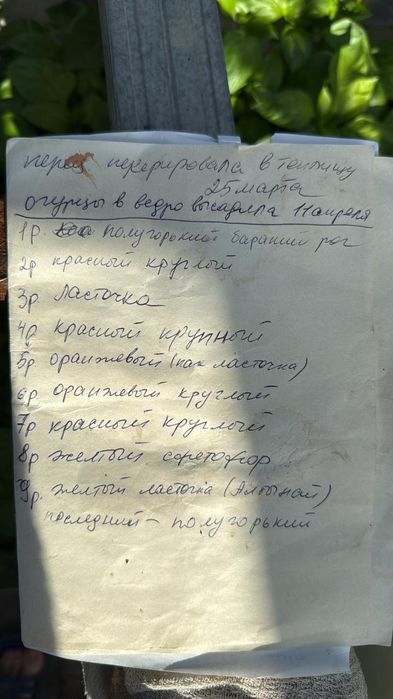 перец пекерировала в теплицу
25 марта
огурцы в ведро высадила 11 апреля
1р. полугорький бараний рог
2р красный круглый
3р. Ласточка
4р красный крупный
5р оранжевый (как ласточка)
6р оранжевый круглый
7р красный круглый
8р желтый светофор
9р. желтый ласточка (Алтынай)
последний - полугорький